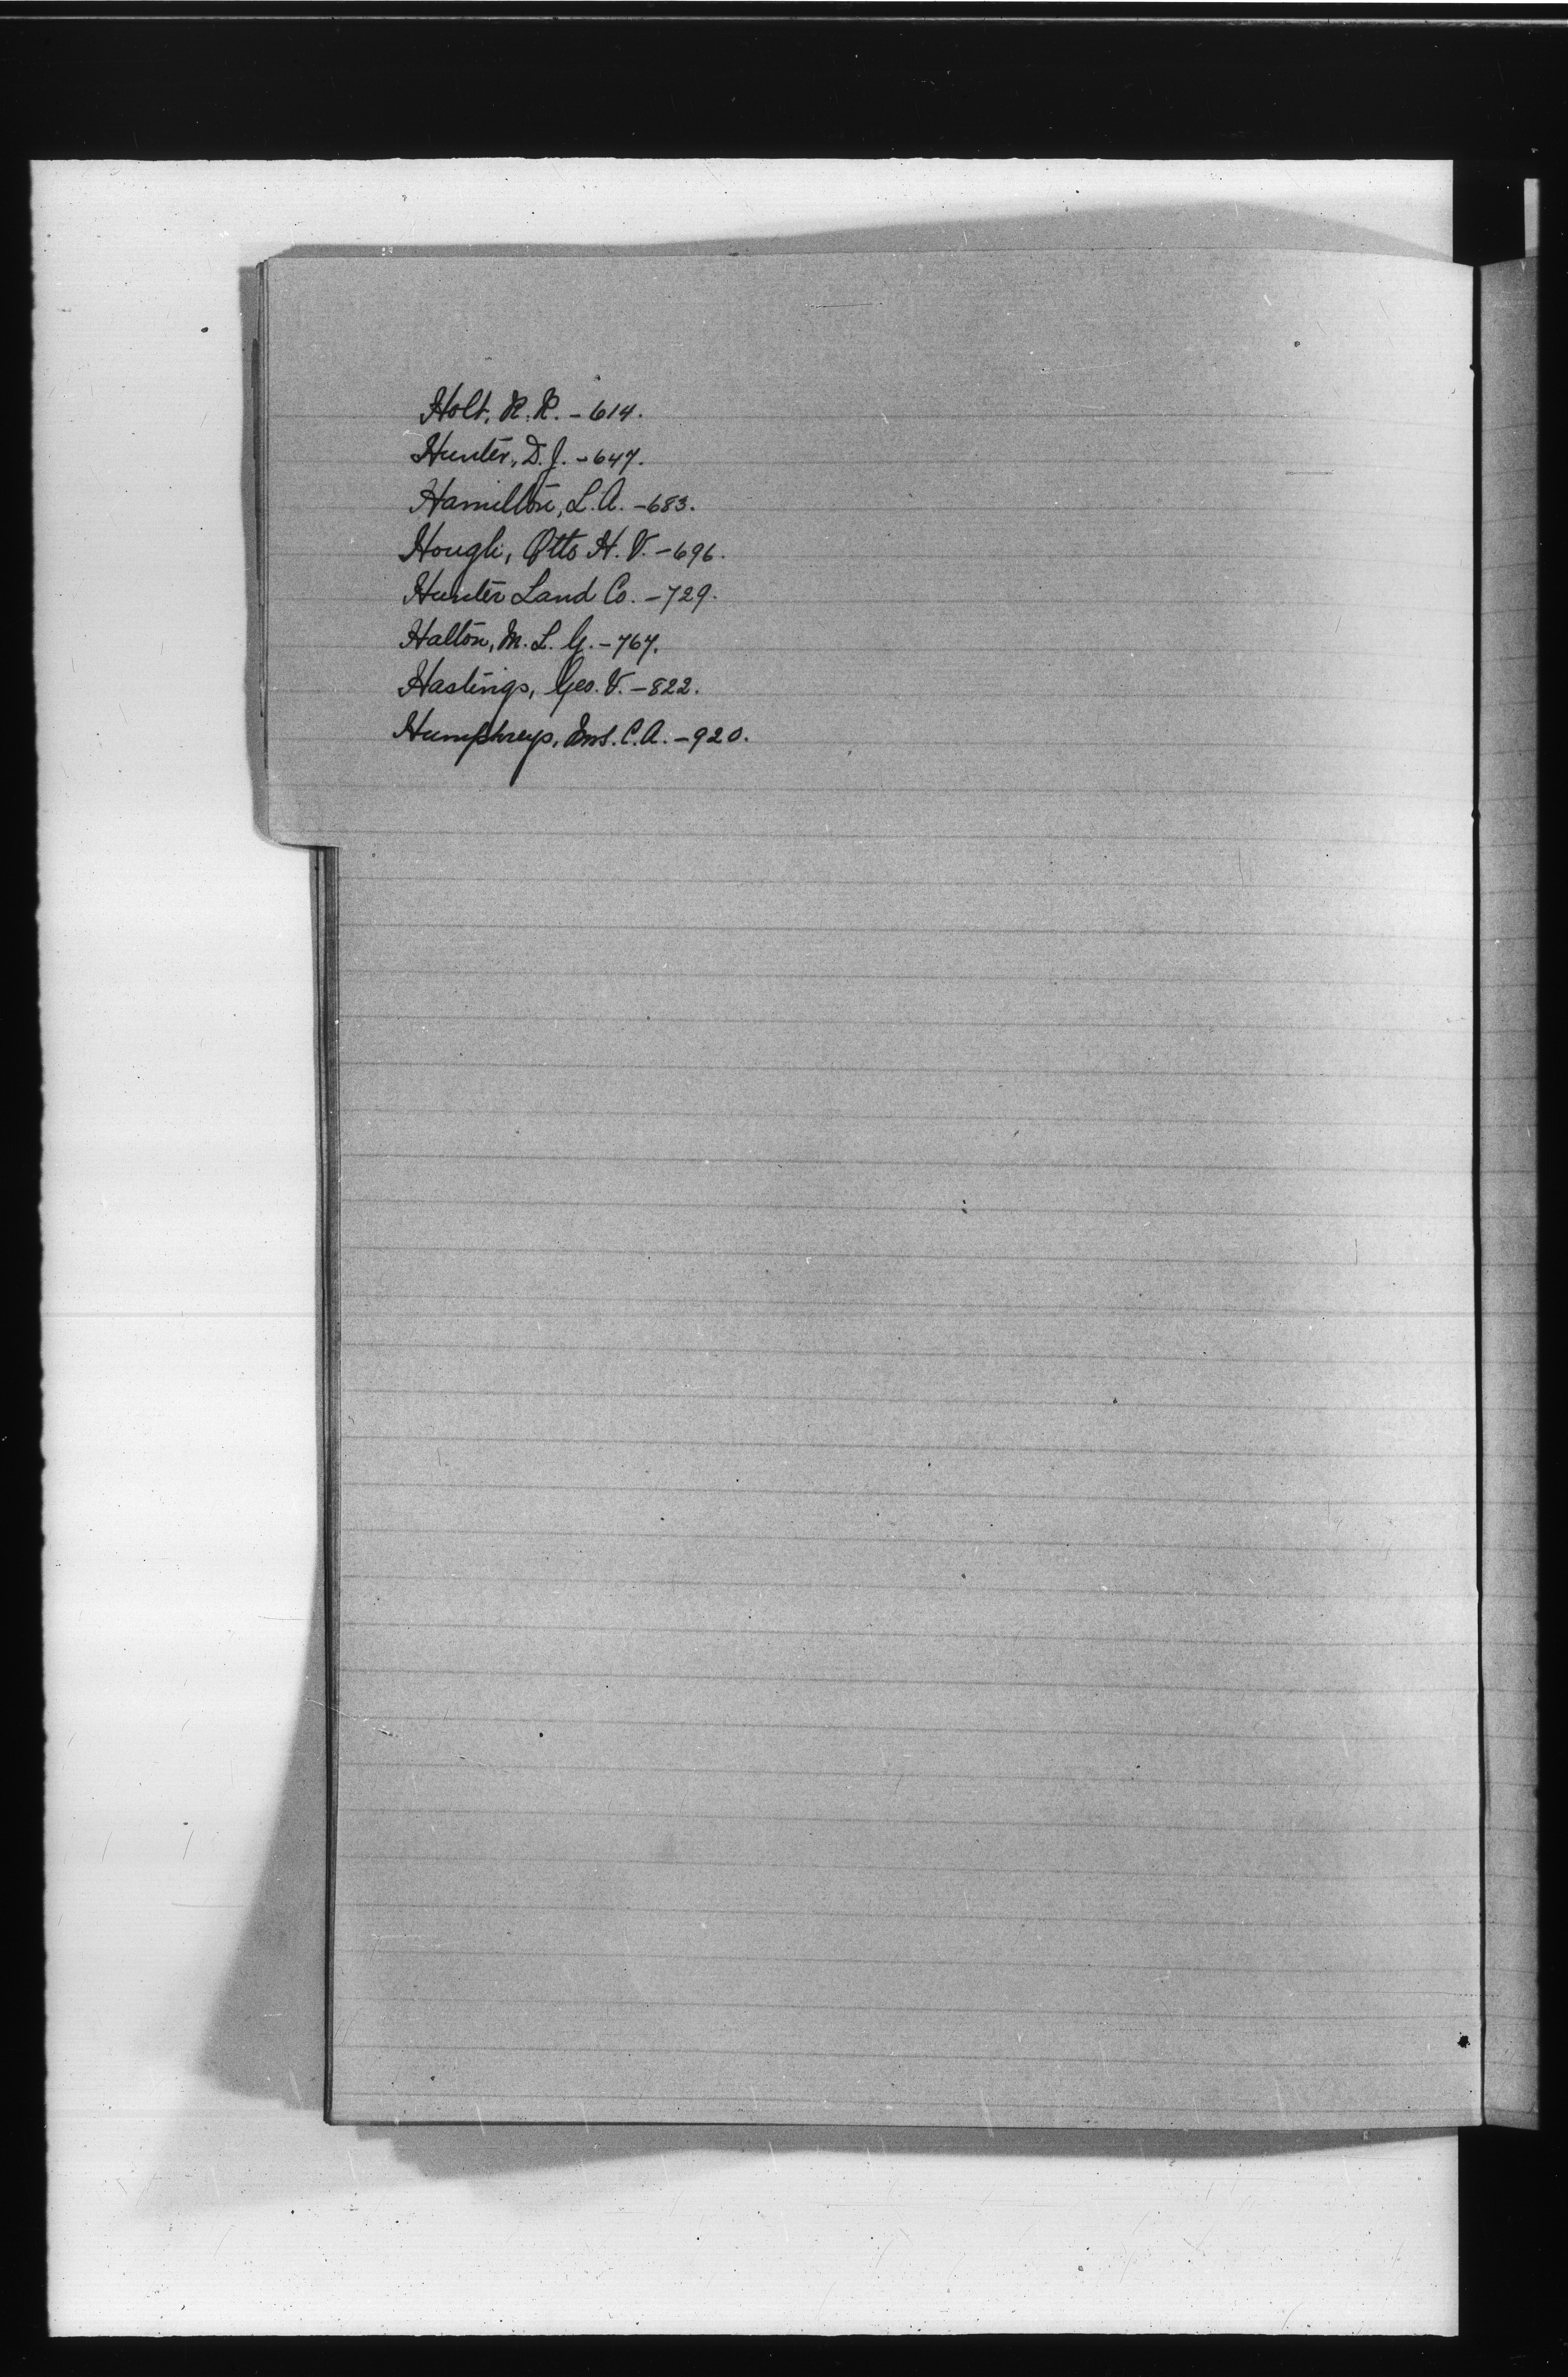 Holt, R. R. - 614.
Hunter, D. J. - 647.
Hamilton, L. A. - 683.
Hough, Otto H. V. - 696.
Hunter Land Co. - 729.
Halton, M. L. G. - 767.
Hastings, Geo. V. - 822.
Humphreys, C. A. - 920.